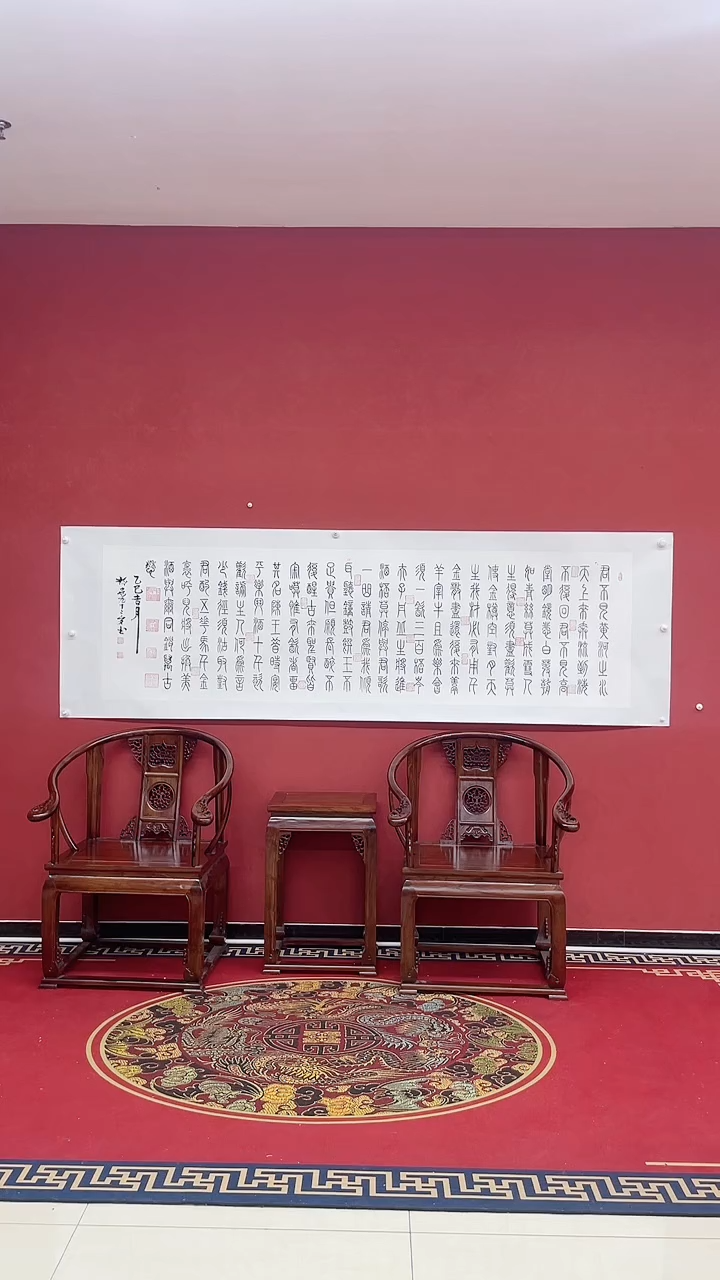 君不見黃河之水
天上來奔流到海
不復回君不見高
堂明鏡悲白髮朝
如青絲莫成雪人
生得意須盡歡莫
使金樽空對月天
生我材必有用千
金散盡還復來烹
羊宰牛且爲樂會
須一飲三百杯岑
夫子丹丘生將進
酒杯莫停與君歌
一曲請君爲我傾
耳聽鐘鼓饌玉不
足貴但願長醉不
復醒古來聖賢皆
寂寞惟有飲者留
其名陳王昔時宴
平樂鬥酒十千恣
歡謔主人何爲言
少錢徑須沽取對
君酌五花馬千金
裘呼兒將出換美
酒與爾同銷萬古
愁
乙巳吉月